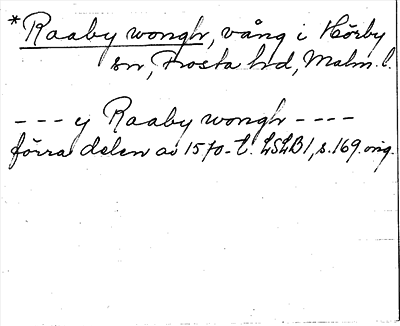 *Raaby wongh, vång i Hörby
sn, Frosta hd, Malm. l.
--- y Raaby wongh ----
förra delen av 1570-t. LSLB1, s. 169. orig.